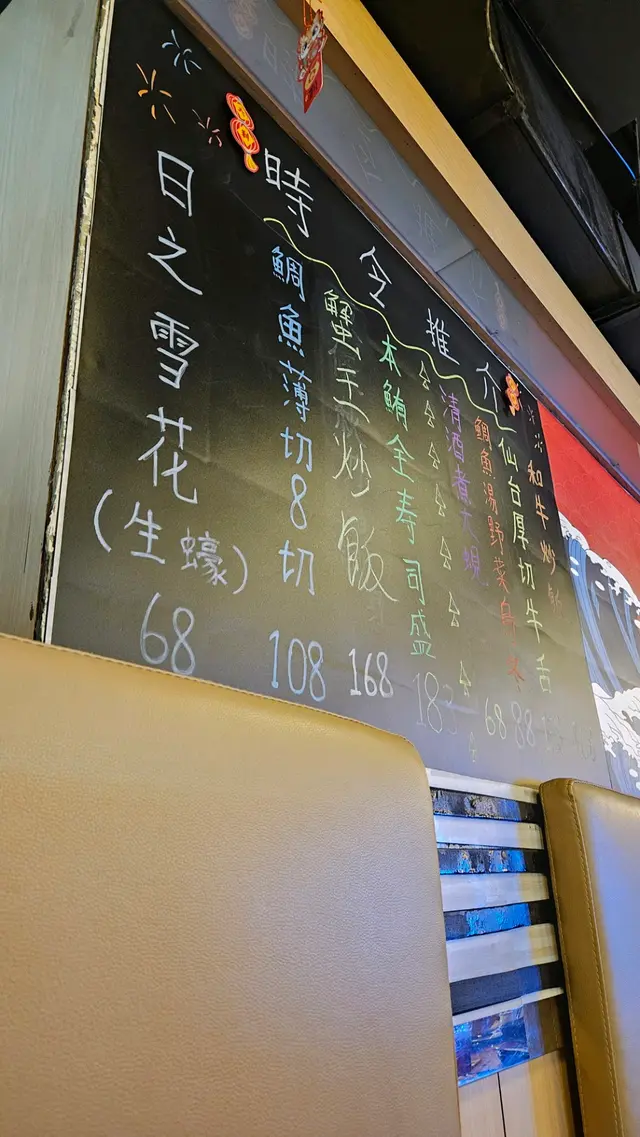 時令推介
日之雪花
(生蠔)
68
鯛魚薄切8切
108
蟹王炒飯
168
本鮪全壽司盛
清酒煮大蜆
68
鯛魚湯野菜烏冬
88
仙台厚切牛舌
和牛炒飯